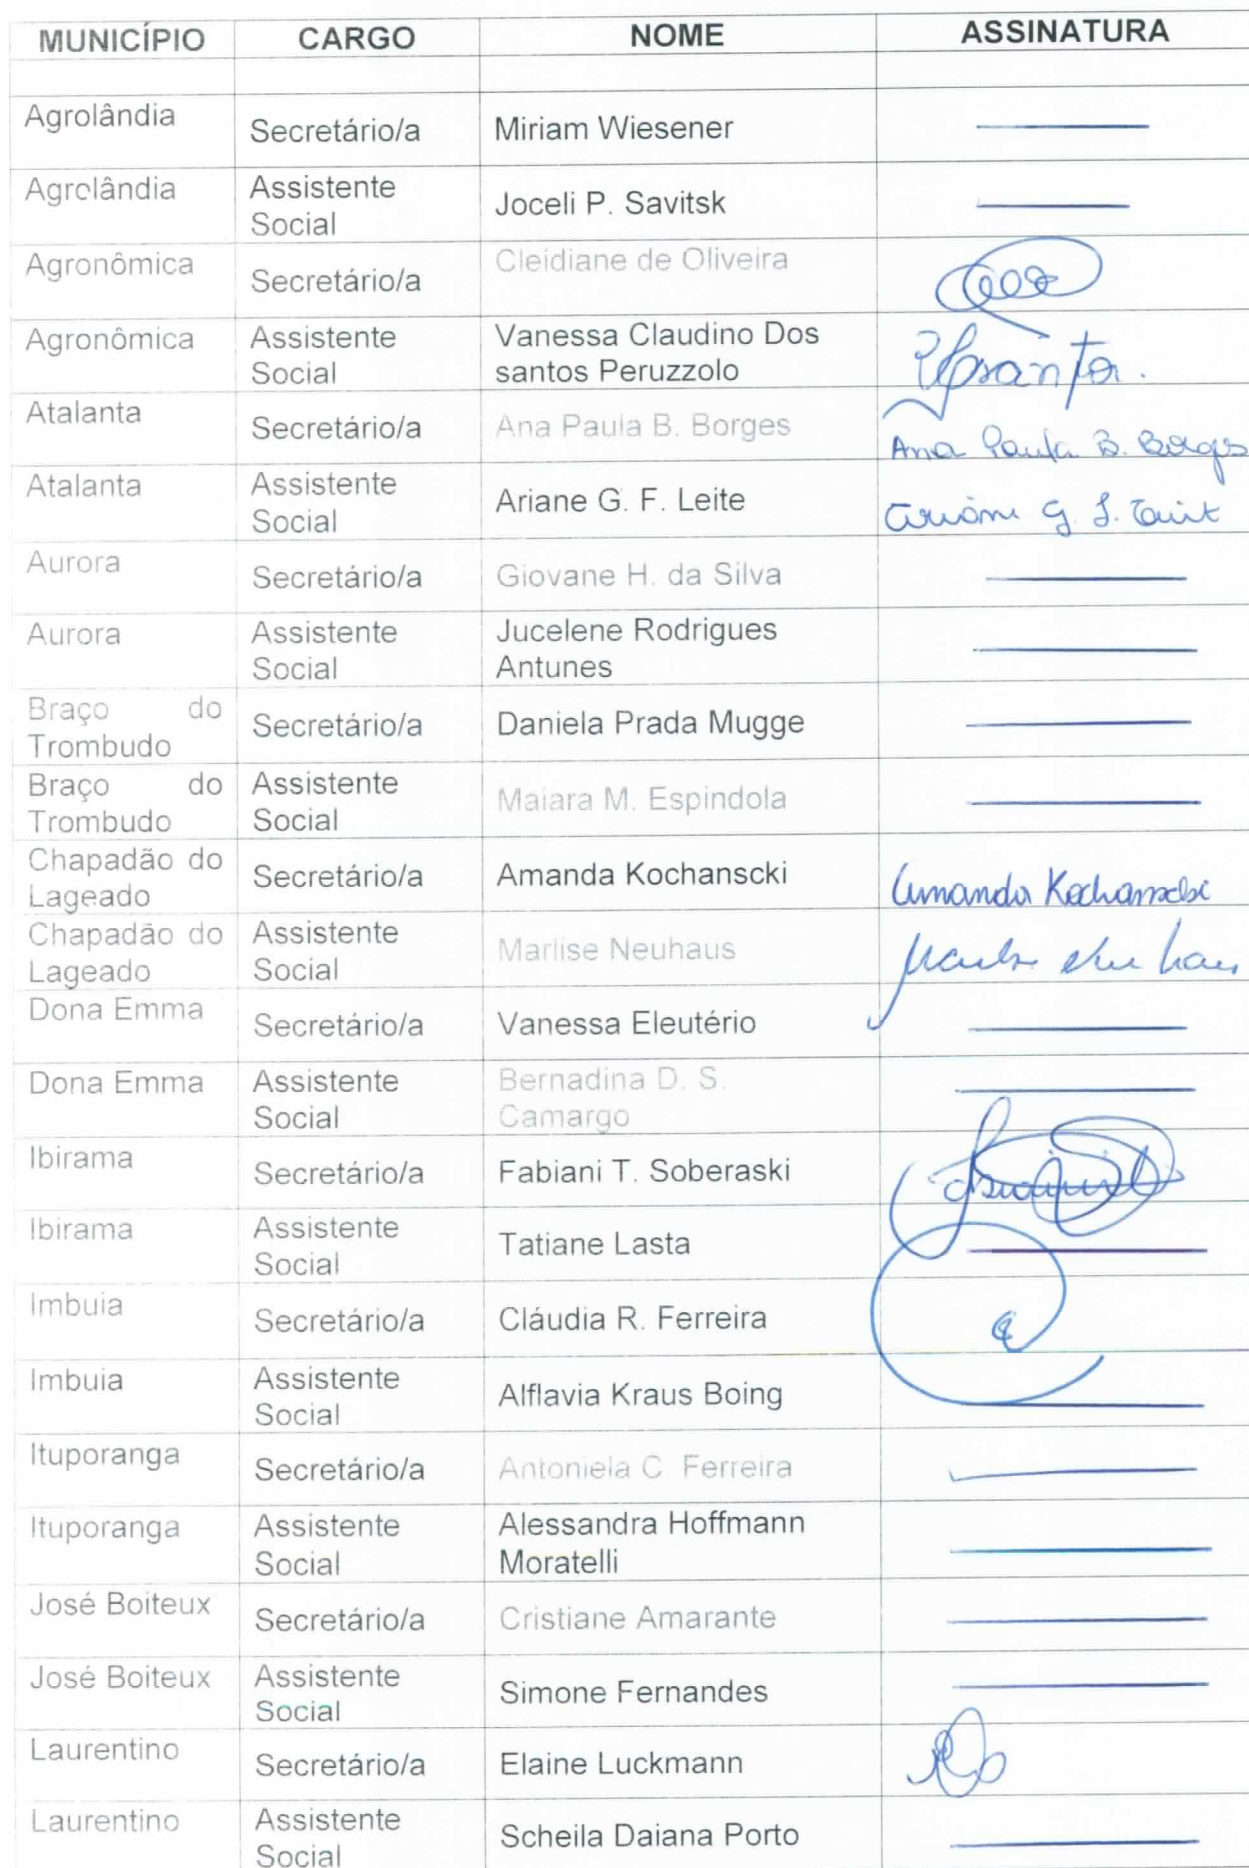 MUNICÍPIO CARGO NOME ASSINATURA
Agrolândia Secretário/a Miriam Wiesener
Agrolândia Assistente Social Joceli P. Savitsk
Agronômica Secretário/a Cleidiane de Oliveira
Agronômica Assistente Social Vanessa Claudino Dos santos Peruzzolo
Atalanta Secretário/a Ana Paula B. Borges Ana Paula B. Borges
Atalanta Assistente Social Ariane G. F. Leite
Aurora Secretário/a Giovane H. da Silva
Aurora Assistente Social Jucelene Rodrigues Antunes
Braço do Trombudo Secretário/a Daniela Prada Mugge
Braço do Trombudo Assistente Social Maiara M. Espindola
Chapadão do Lageado Secretário/a Amanda Kochanscki Amanda Kochanscki
Chapadão do Lageado Assistente Social Marlise Neuhaus
Dona Emma Secretário/a Vanessa Eleutério
Dona Emma Assistente Social Bernadina D. S. Camargo
Ibirama Secretário/a Fabiani T. Soberaski
Ibirama Assistente Social Tatiane Lasta
Imbuia Secretário/a Cláudia R. Ferreira
Imbuia Assistente Social Alflavia Kraus Boing
Ituporanga Secretário/a Antoniela C Ferreira
Ituporanga Assistente Social Alessandra Hoffmann Moratelli
José Boiteux Secretário/a Cristiane Amarante
José Boiteux Assistente Social Simone Fernandes
Laurentino Secretário/a Elaine Luckmann
Laurentino Assistente Social Scheila Daiana Porto